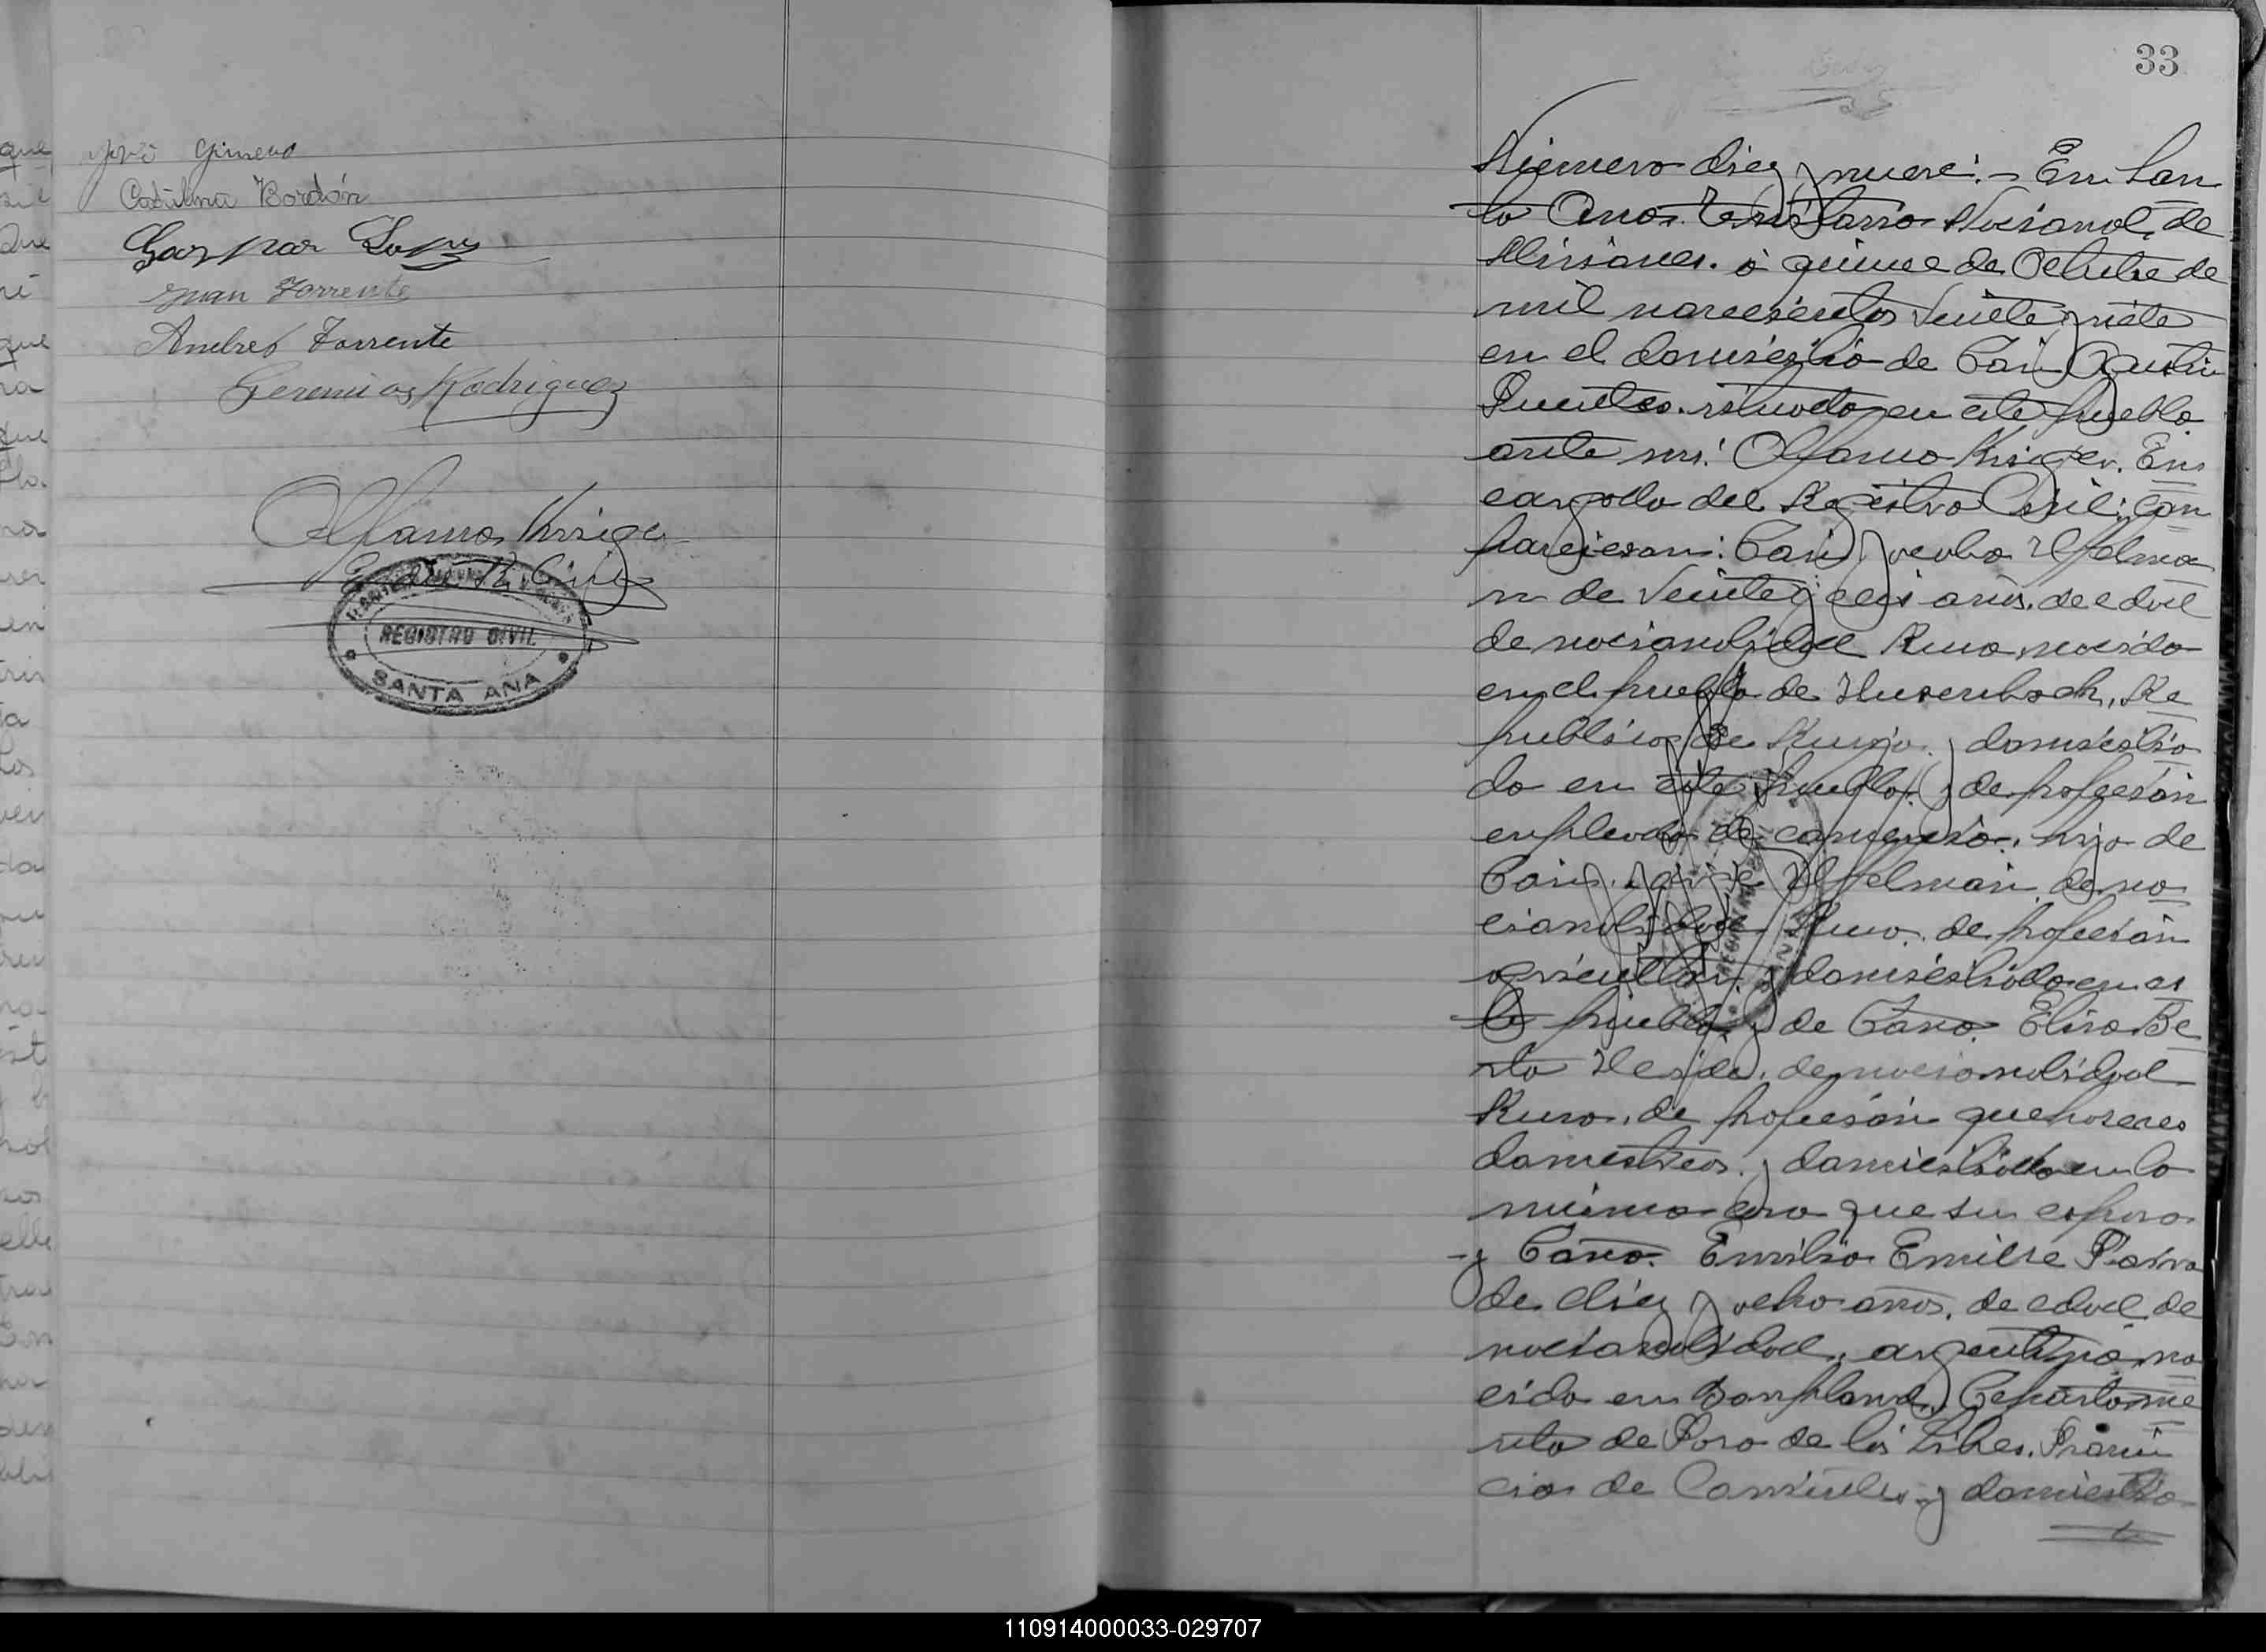 José Gimeno
Catalina Bordón
Gaspar Lopez
Juan Torrente
Andres Torrente
Geremias Rodriguez
Alfonso Kriger
REGISTRO CIVIL
SANTA ANA
33
Número diez y nueve. - En San
ta Ana Territorio Nacional de
Misiones. á quince de Octubre de
mil novecientos veinte y siete
en el domicilio de Don Agustin
Puentes. situado en este pueblo
ante mi: Alfonso Kriger. En
cargado del Registro Civil: Com
parecieron: Don Jacobo
n de veinte y seis años de edad
de nacionalidad Ruso nacido
en el pueblo de Re
publica de Rusia y domicilia
do en este pueblo y de profesión
empleado de comercio. hijo de
Don de na
cionalidad Ruso. de profesión
agricultor y domiciliado en es
te pueblo y de Doña Elisa Be
rta de nacionalidad
Rusa. de profesión quehaceres
domesticos y domiciliada en la
misma casa que su esposo
y Doña. Emilia
de diez y ocho años. de edad de
nacionalidad argentina na
cida en Bonpland Departame
nto de Paso de los Libres. Provin
cia de Corrientes y domicilia
110914000033-029707